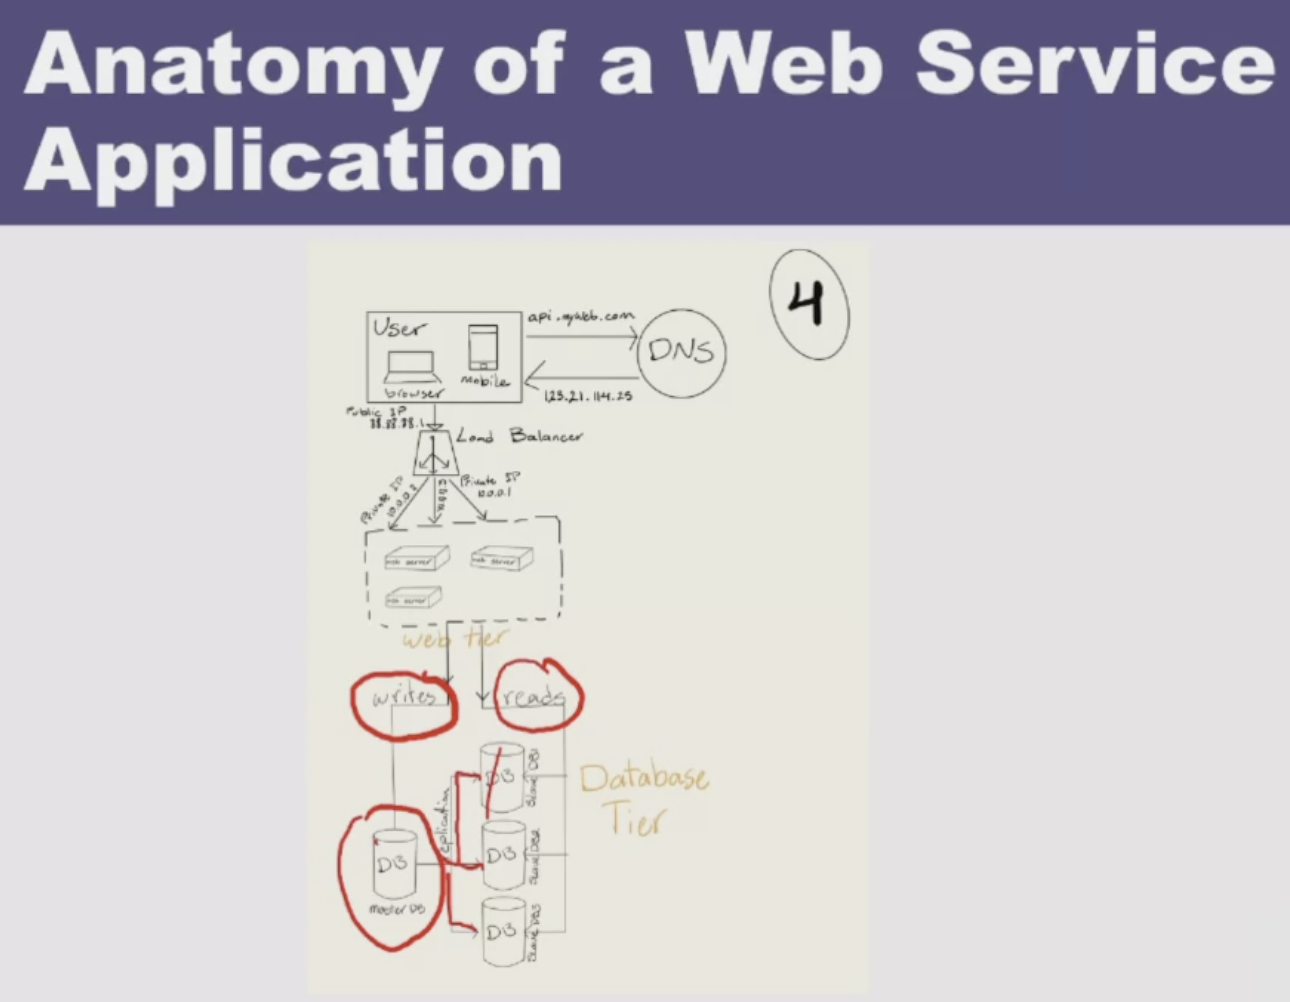 Anatomy of a Web Service
Application
4
User
browser
mobile
api.myWeb.com
DNS
123.21.114.25
Public IP
Load Balancer
Private IP
Private IP
10.0.0.1
web server
web server
web server
web tier
writes
reads
DB
Slave DB1
Database
Tier
DB
Slave DB2
DB
master DB
DB
Slave DB3